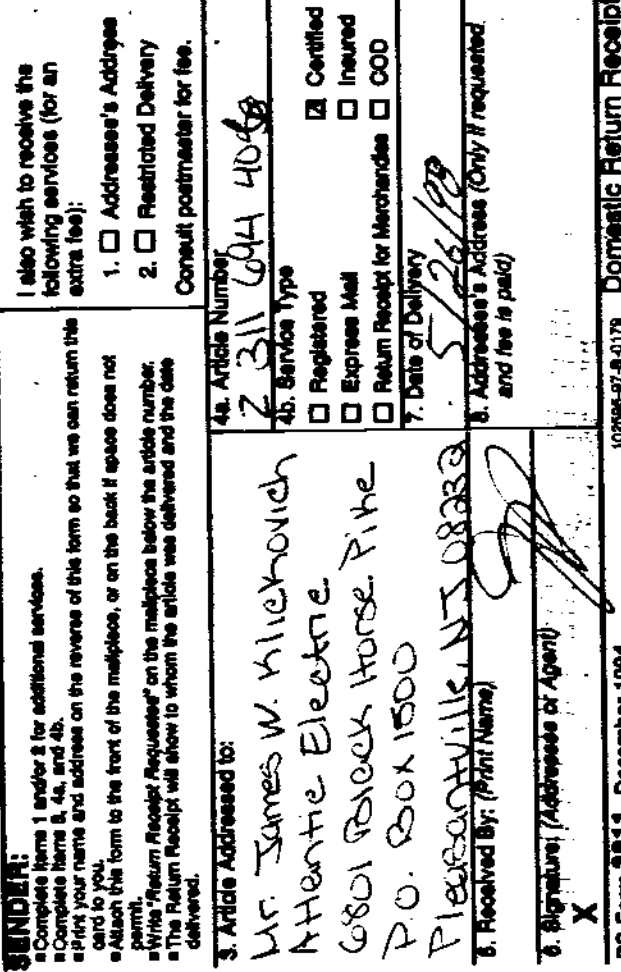 SENDER:
■ Complete items 1 and/or 2 for additional services.
■ Complete items 3, 4a, and 4b.
■ Print your name and address on the reverse of this form so that we can return this
card to you.
■ Attach this form to the front of the mailpiece, or on the back if space does not
permit.
■ Write "Return Receipt Requested" on the mailpiece below the article number.
■ The Return Receipt will show to whom the article was delivered and the date
delivered.
I also wish to receive the
following services (for an
extra fee):
1. ☐ Addressee's Address
2. ☐ Restricted Delivery
Consult postmaster for fee.
3. Article Addressed to:
Mr. James W. Klickovich
Atlantic Electric
6801 Black Horse Pike
P.O. Box 1500
Pleasantville, NJ 08232
4a. Article Number
Z 311 694 404
4b. Service Type
☐ Registered
☒ Certified
☐ Express Mail
☐ Insured
☐ Return Receipt for Merchandise
☐ COD
7. Date of Delivery
5/26/99
5. Received By: (Print Name)
8. Addressee's Address (Only if requested
and fee is paid)
6. Signature: (Addressee or Agent)
X
PS Form 3811, December 1994
102595-97-B-0179
Domestic Return Receipt